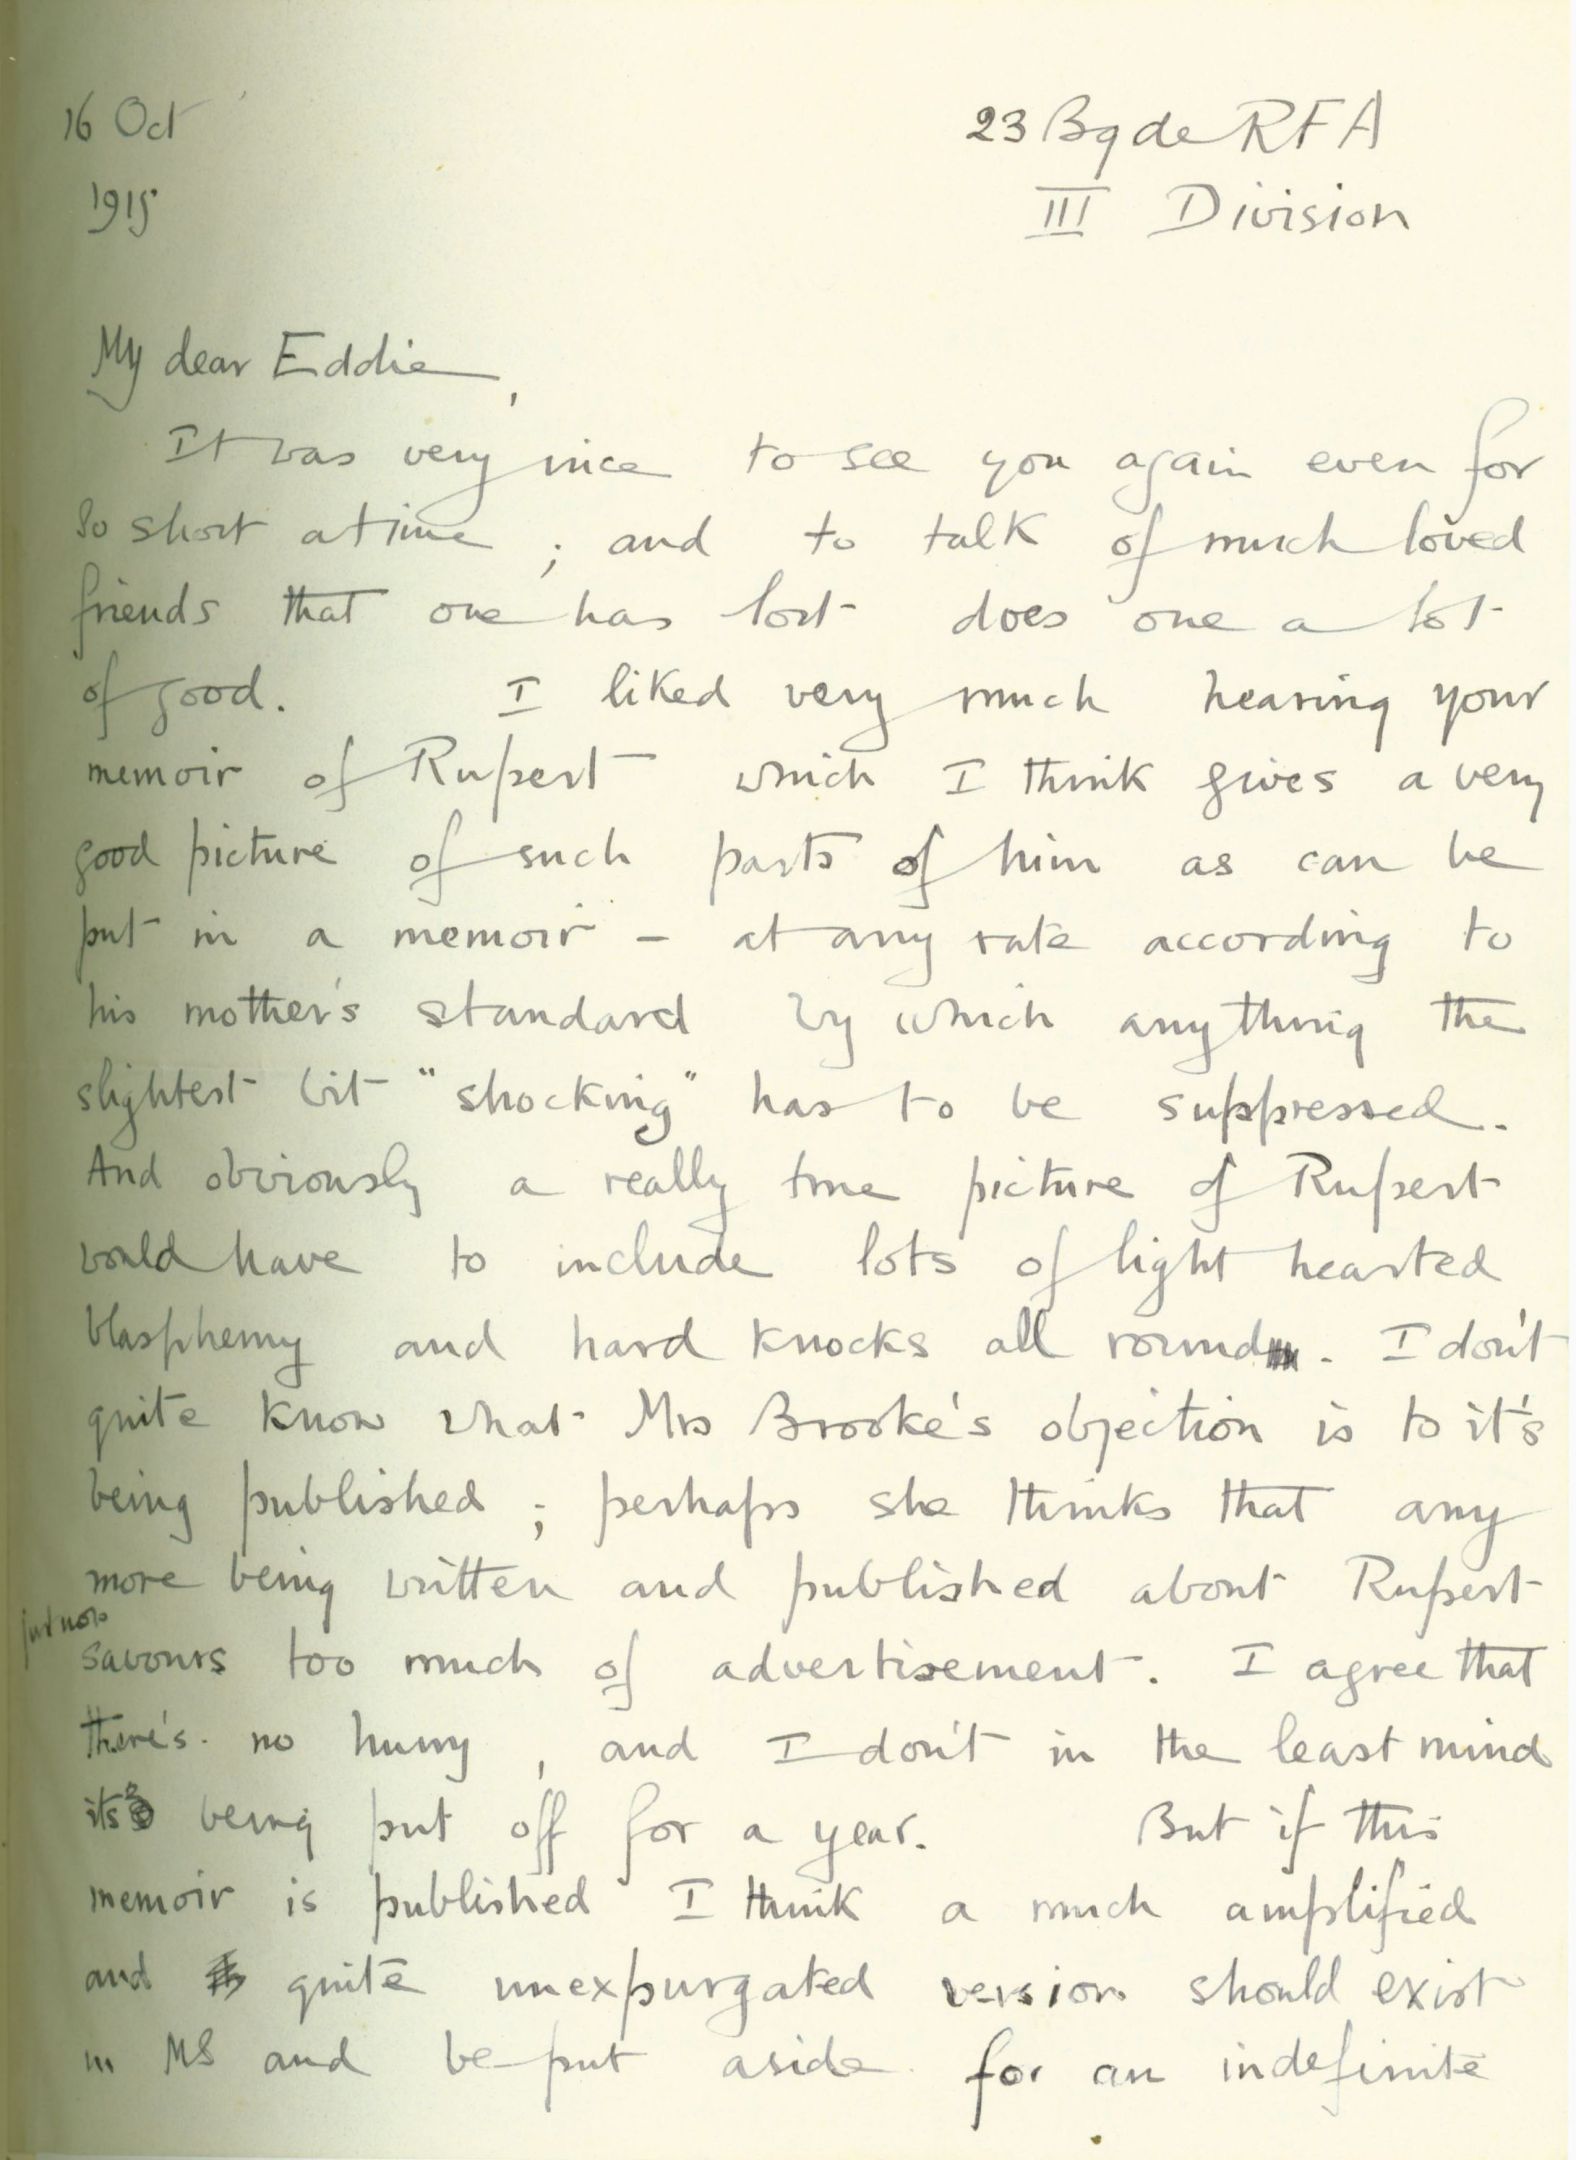 16 Oct
1915
23 Bgde RFA
III Division
My dear Eddie,
It was very nice to see you again even for
so short a time ; and to talk of much loved
friends that one has lost does one a lot
of good. I liked very much hearing your
memoir of Rupert which I think gives a very
good picture of such parts of him as can be
put in a memoir - at any rate according to
his mother's standard by which anything the
slightest bit "shocking" has to be suppressed.
And obviously a really true picture of Rupert
would have to include lots of light hearted
blasphemy and hard knocks all round. I don't
quite know what Mrs Brooke's objection is to it's
being published ; perhaps she thinks that any
more being written and published about Rupert
just now
savours too much of advertisement. I agree that
there's no hurry, and I don't in the least mind
its being put off for a year. But if this
memoir is published I think a much amplified
and quite unexpurgated version should exist
in MS and be put aside for an indefinite